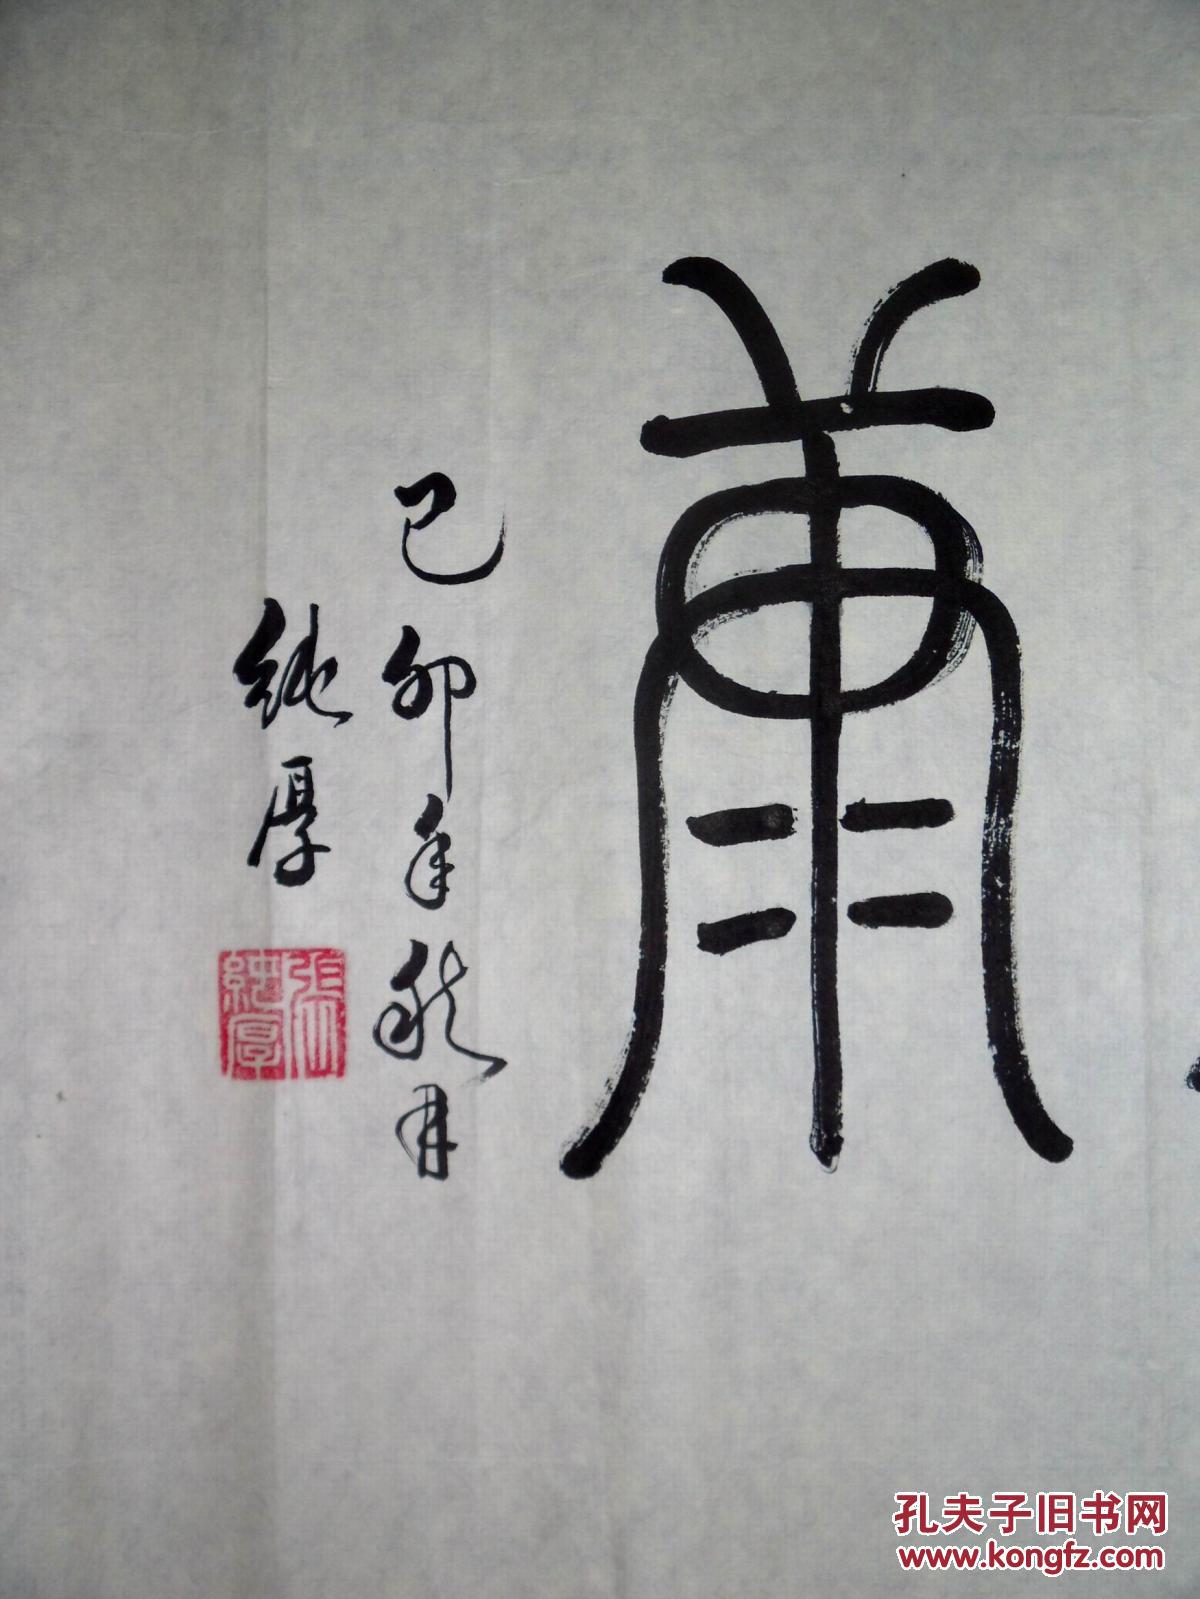 康
己卯年秋月
純厚
張純厚
孔夫子旧书网
www.kongfz.com